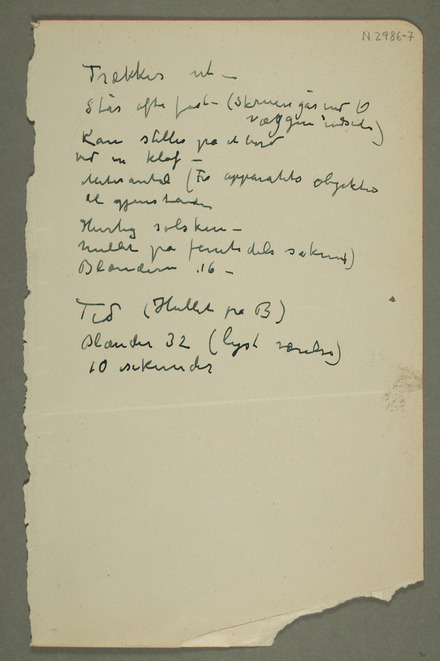 N 2986-7
Trækkes ut —
Slås ofte fast — (Skruen går ned
væggen indside)
Kan stilles på et bord
ved en klaf —
(Fra apparatets objektiv
til gjenstanden
Hurtig solskin —
hullet på femtedels sekund)
Blænderen 16 —
Tid (Hullet på B)
Blænder 32 (lyst værelse)
10 sekunder